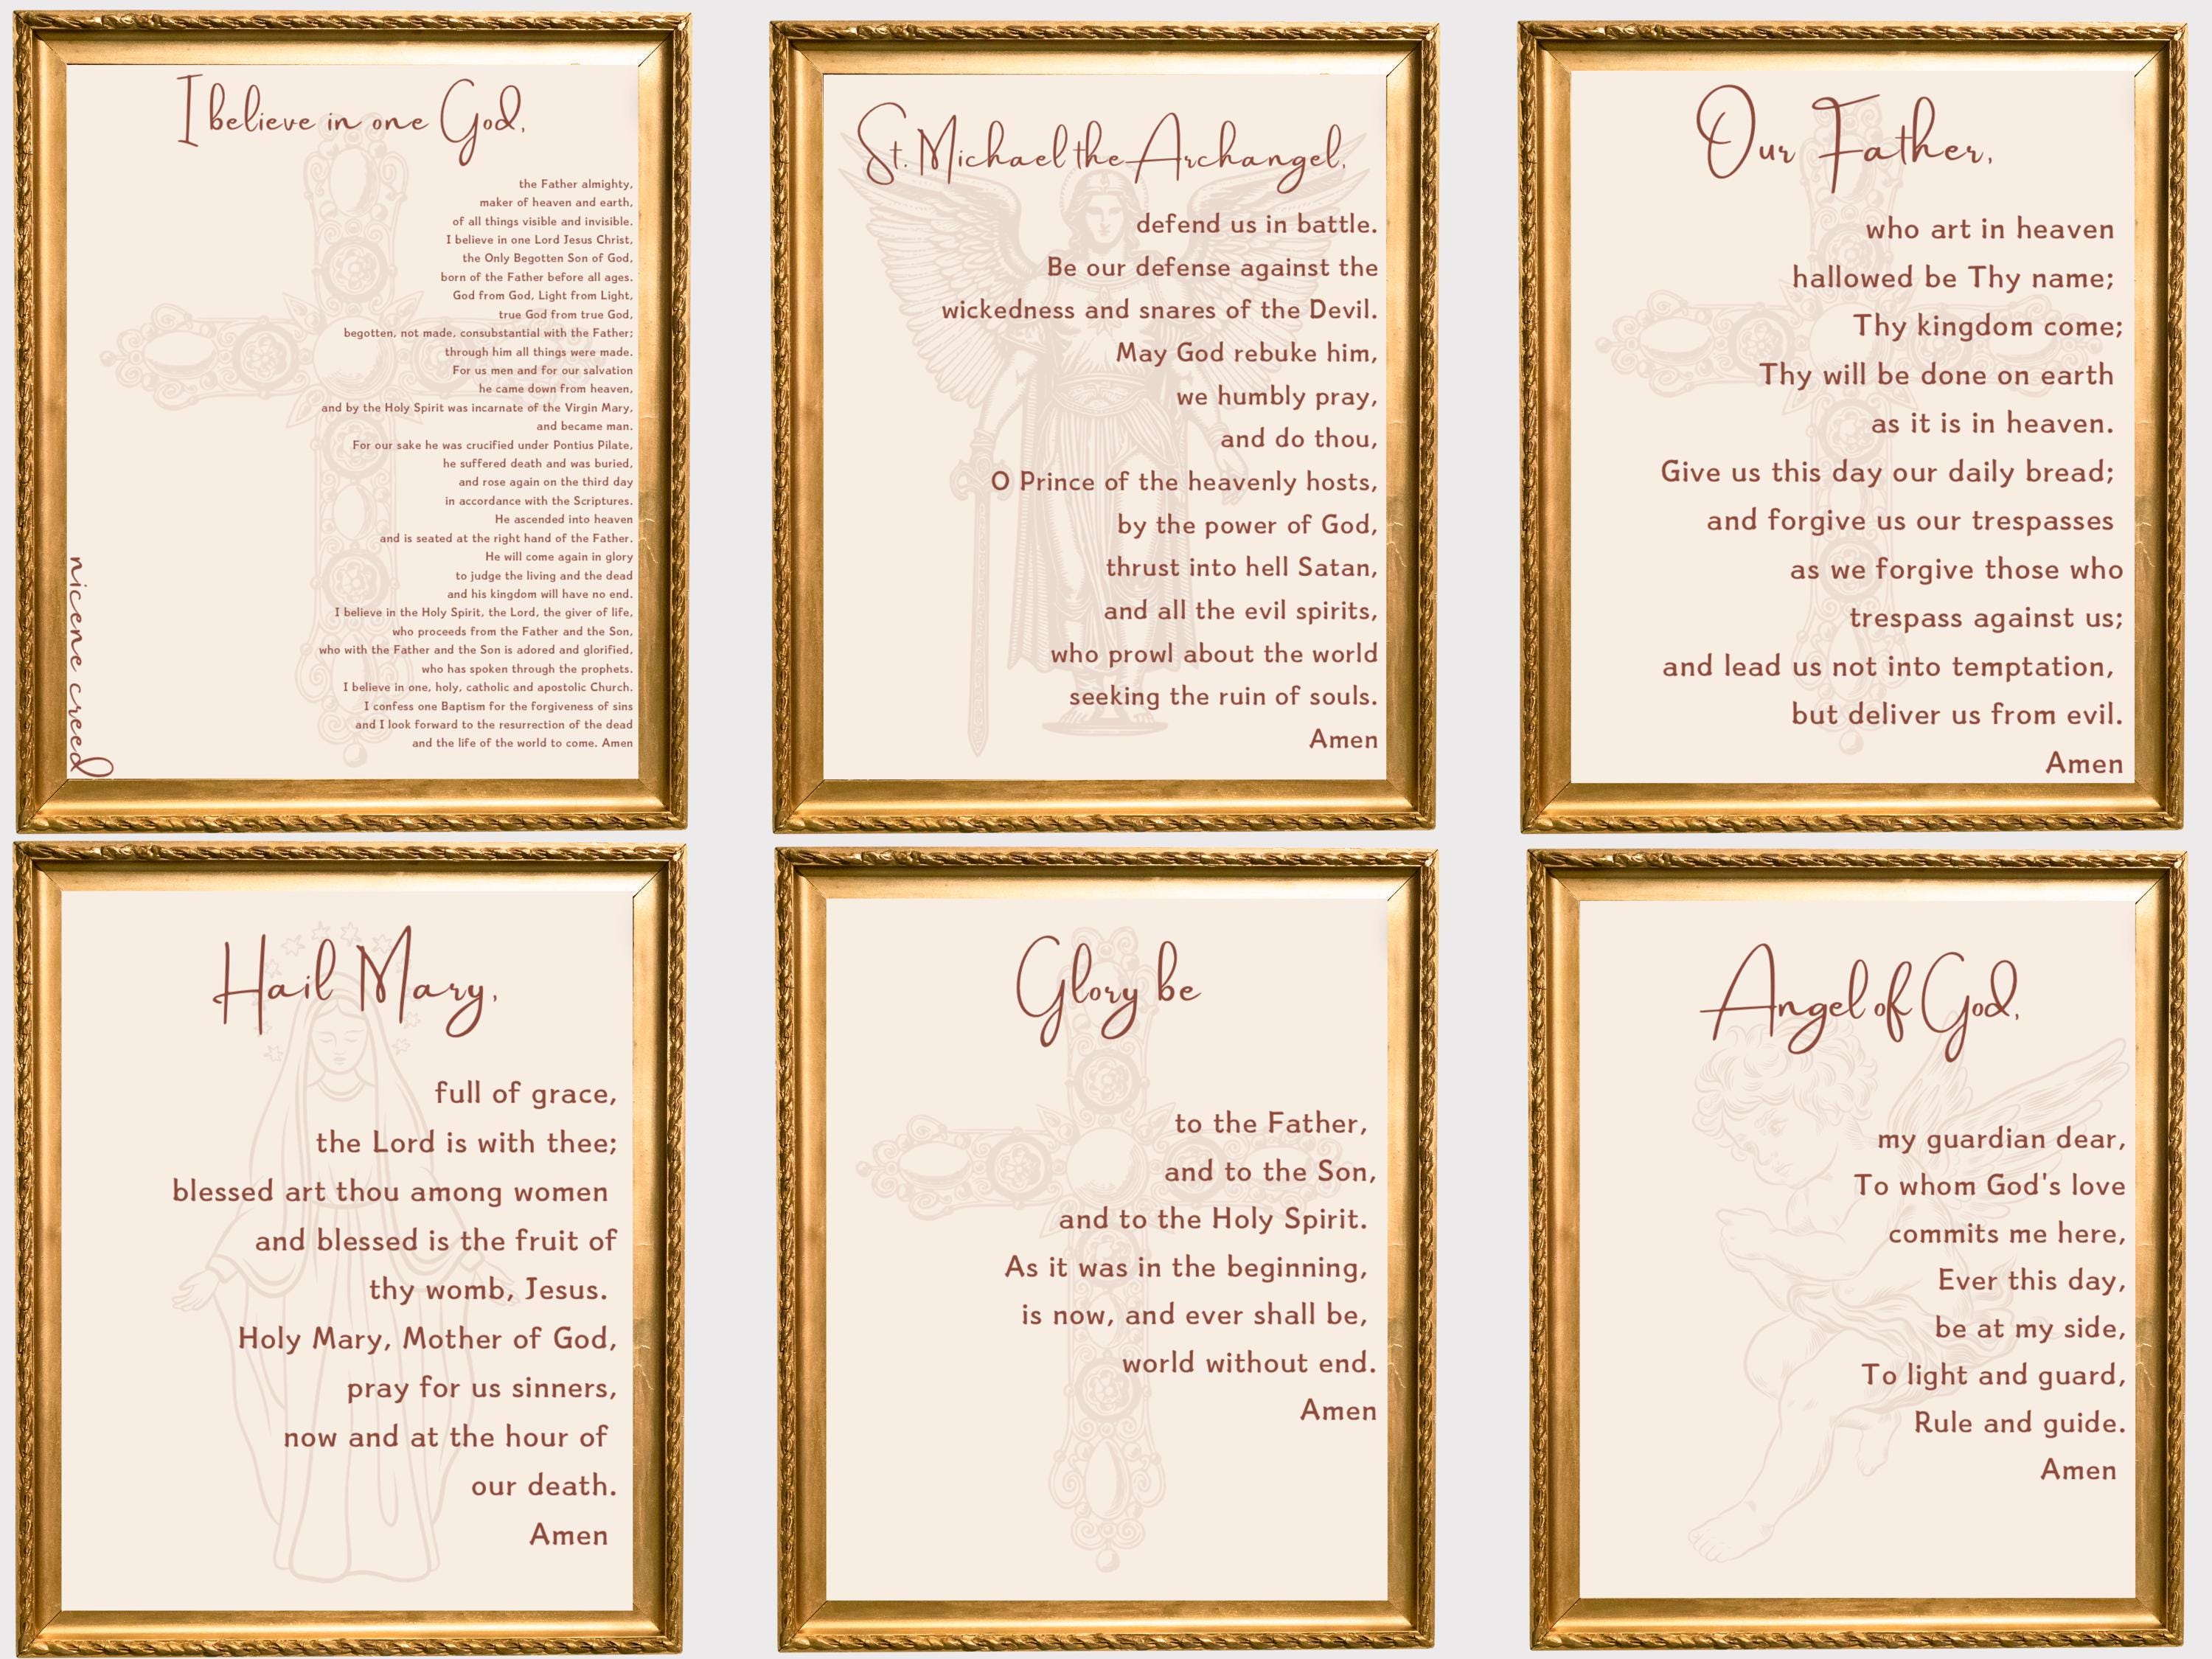 I believe in one God,
the Father almighty,
maker of heaven and earth,
of all things visible and invisible.
I believe in one Lord Jesus Christ,
the Only Begotten Son of God,
born of the Father before all ages.
God from God, Light from Light,
true God from true God,
begotten, not made, consubstantial with the Father;
through him all things were made.
For us men and for our salvation
he came down from heaven,
and by the Holy Spirit was incarnate of the Virgin Mary,
and became man.
For our sake he was crucified under Pontius Pilate,
he suffered death and was buried,
and rose again on the third day
in accordance with the Scriptures.
He ascended into heaven
and is seated at the right hand of the Father.
He will come again in glory
to judge the living and the dead
and his kingdom will have no end.
I believe in the Holy Spirit, the Lord, the giver of life,
who proceeds from the Father and the Son,
who with the Father and the Son is adored and glorified,
who has spoken through the prophets.
I believe in one, holy, catholic and apostolic Church.
I confess one Baptism for the forgiveness of sins
and I look forward to the resurrection of the dead
and the life of the world to come. Amen
nicene creed
St. Michael the Archangel,
defend us in battle.
Be our defense against the
wickedness and snares of the Devil.
May God rebuke him,
we humbly pray,
and do thou,
O Prince of the heavenly hosts,
by the power of God,
thrust into hell Satan,
and all the evil spirits,
who prowl about the world
seeking the ruin of souls.
Amen
Our Father,
who art in heaven
hallowed be Thy name;
Thy kingdom come;
Thy will be done on earth
as it is in heaven.
Give us this day our daily bread;
and forgive us our trespasses
as we forgive those who
trespass against us;
and lead us not into temptation,
but deliver us from evil.
Amen
Hail Mary,
full of grace,
the Lord is with thee;
blessed art thou among women
and blessed is the fruit of
thy womb, Jesus.
Holy Mary, Mother of God,
pray for us sinners,
now and at the hour of
our death.
Amen
Glory be
to the Father,
and to the Son,
and to the Holy Spirit.
As it was in the beginning,
is now, and ever shall be,
world without end.
Amen
Angel of God,
my guardian dear,
To whom God's love
commits me here,
Ever this day,
be at my side,
To light and guard,
Rule and guide.
Amen